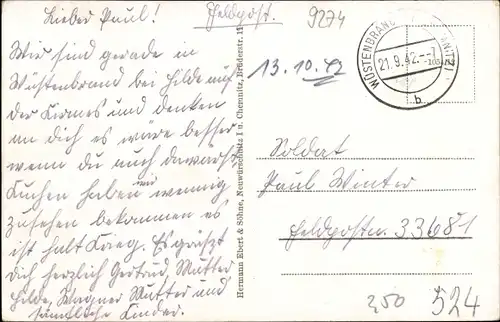 Lieber Paul!
Wir sind gerade in
Wüstenbrand bei Hilde auf
der Kirmes und denken
an dich es wäre besser
wenn du auch da wärst
Kuchen haben wir wenig
zusehen bekommen es
ist halt Krieg. Es grüßt
dich herzlich Gertrud, Mutter
Hilde, Wagner Mutter und
sämtliche Kinder.
Hermann Ebert & Söhne, Neuwürschnitz i u. Chemnitz, Brüderstr. 11
Feldpost.
9274
13.10.42
WÜSTENBRAND
21.9.42.--7
b
Soldat
Paul Winter
Feldpostnr. 33681
250
524